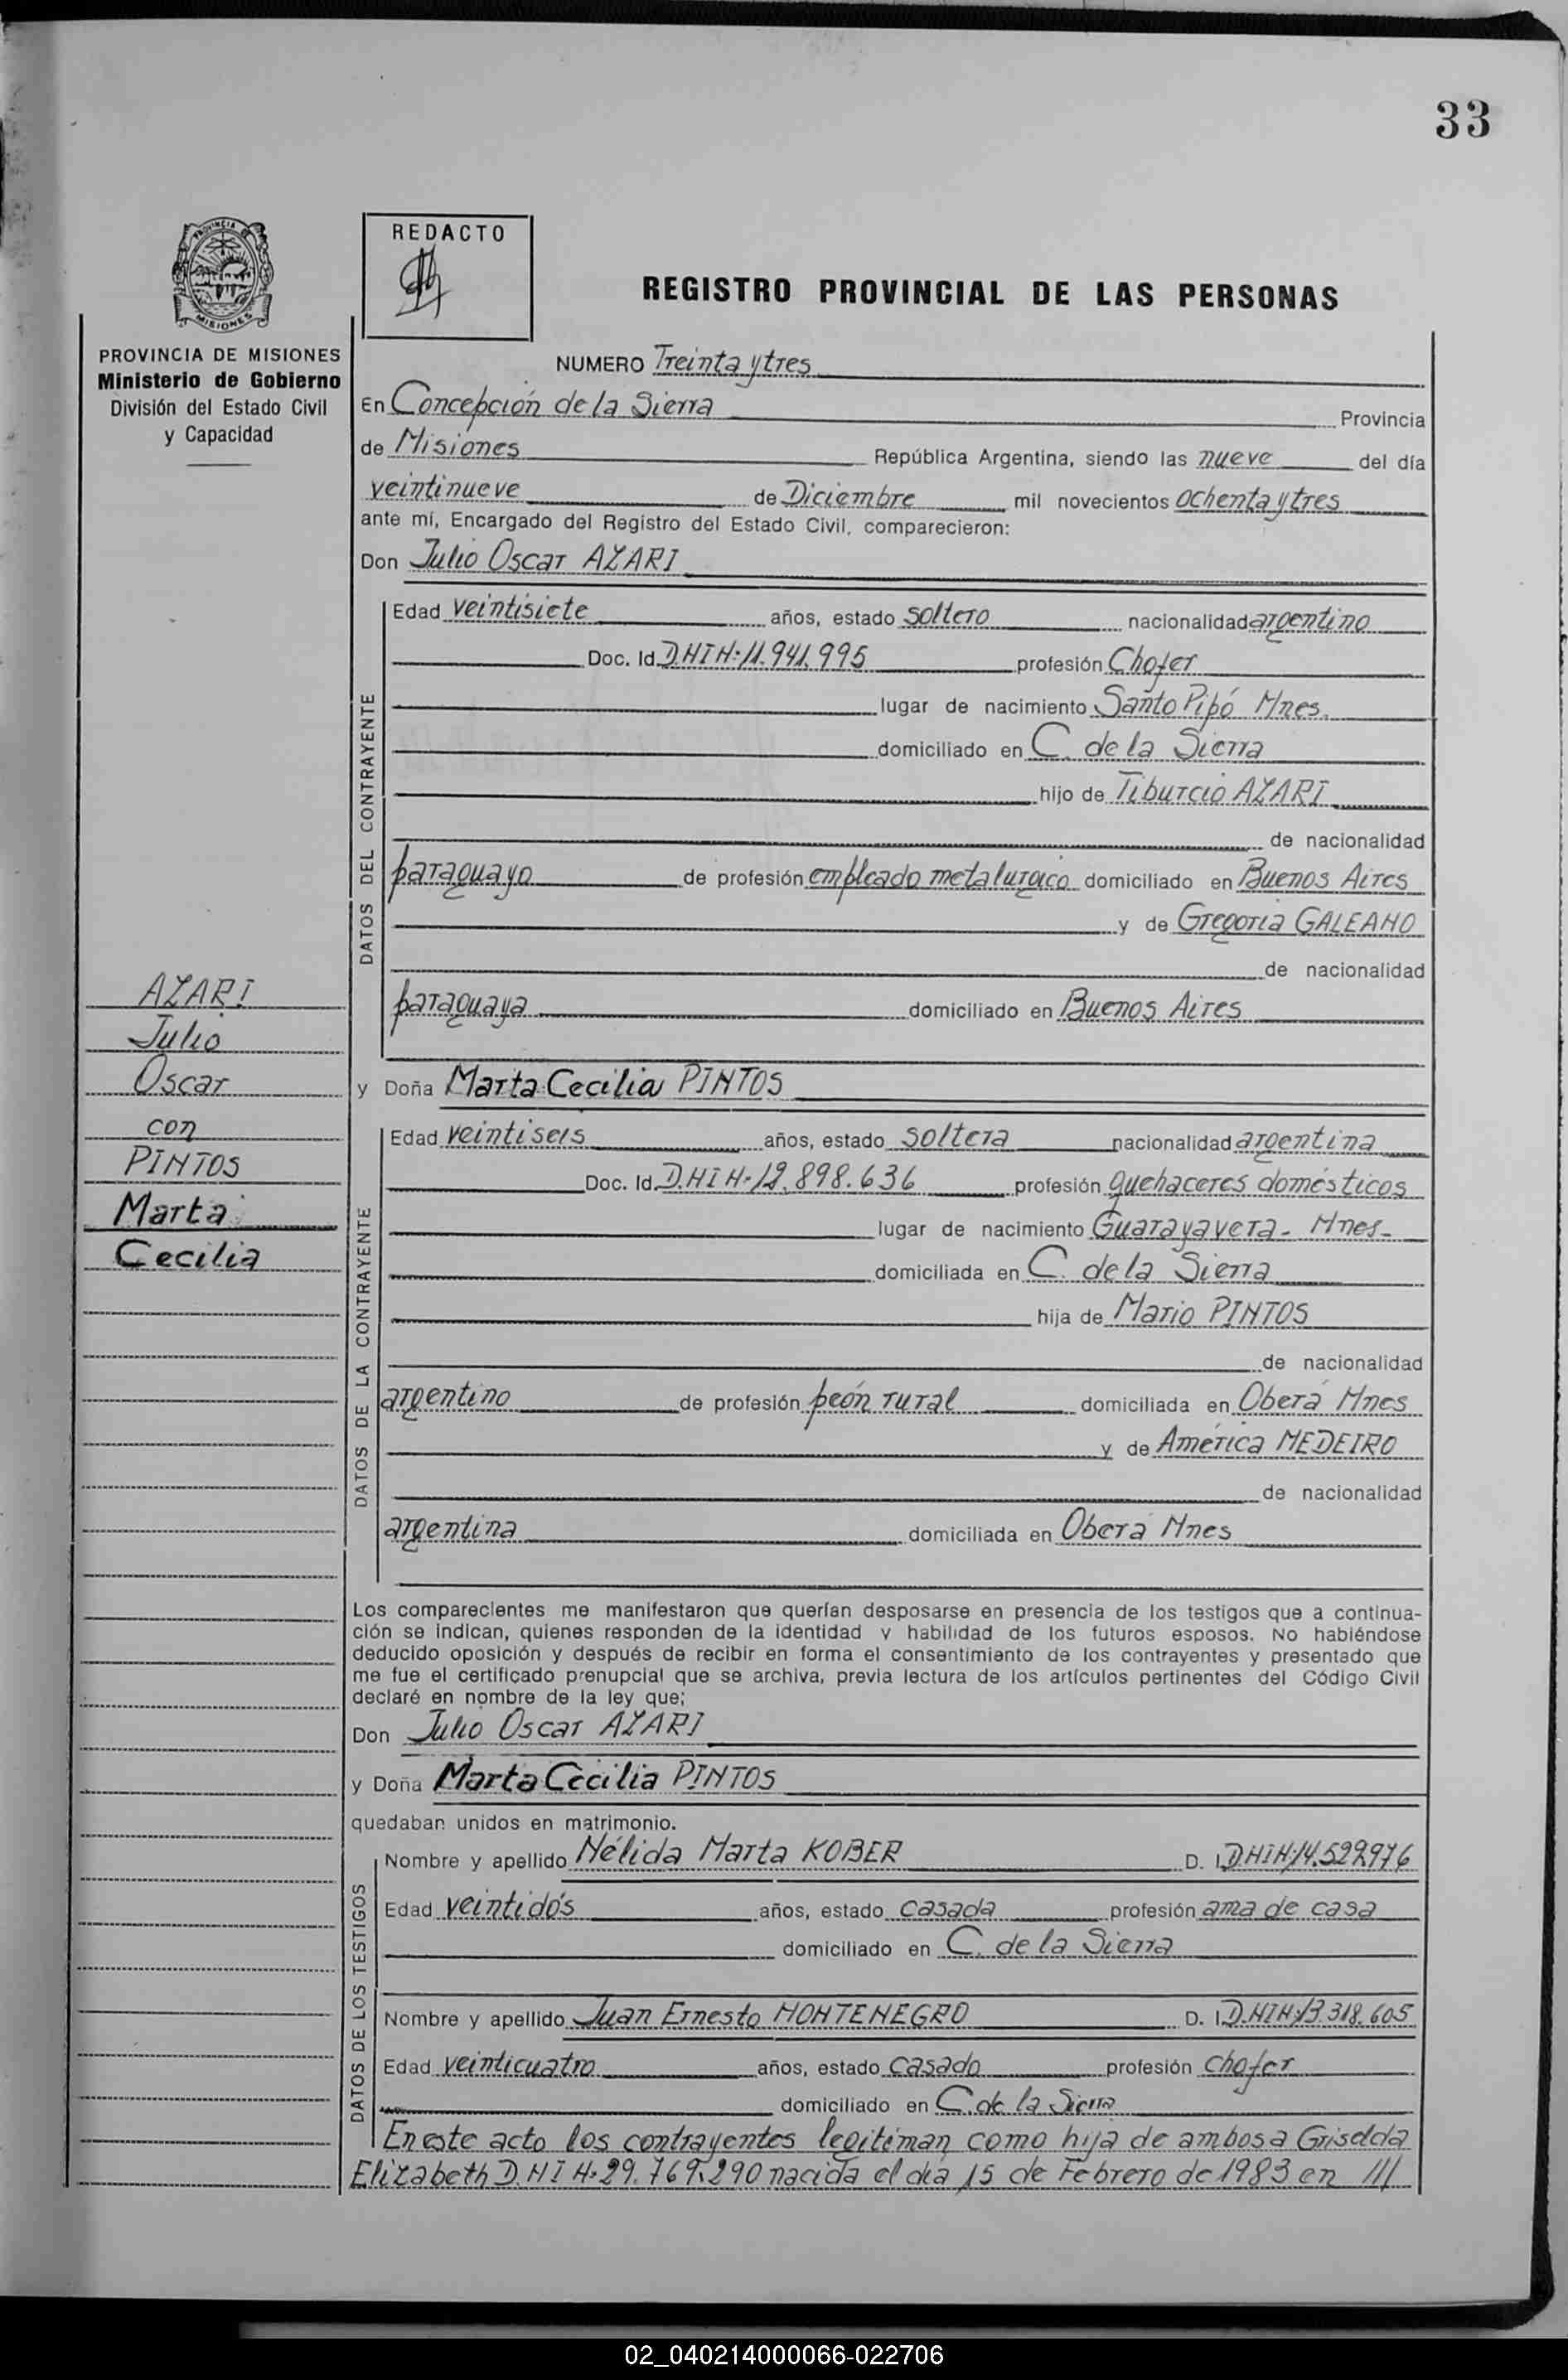 33
PROVINCIA DE MISIONES
PROVINCIA DE MISIONES
Ministerio de Gobierno
División del Estado Civil
y Capacidad
REDACTO
REGISTRO PROVINCIAL DE LAS PERSONAS
NUMERO Treinta y tres
En Concepción de la Sierra Provincia
de Misiones República Argentina, siendo las nueve del día
veintinueve de Diciembre mil novecientos ochenta y tres
ante mí, Encargado del Registro del Estado Civil, comparecieron:
Don Julio Oscar AZARI
DATOS DEL CONTRAYENTE
Edad veintisiete años, estado soltero nacionalidad argentino
Doc. Id. D.N.I.N: 11.941.995 profesión Chofer
lugar de nacimiento Santo Pipó Mnes.
domiciliado en C. de la Sierra
hijo de Tiburcio AZARI
de nacionalidad
paraguayo de profesión empleado metalurgico domiciliado en Buenos Aires
y de Gregoria GALEANO
de nacionalidad
paraguaya domiciliado en Buenos Aires
AZARI
Julio
Oscar
con
PINTOS
Marta
Cecilia
y Doña Marta Cecilia PINTOS
DATOS DE LA CONTRAYENTE
Edad veintiseis años, estado soltera nacionalidad argentina
Doc. Id. D.N.I N· 12.898.636 profesión quehaceres domésticos
lugar de nacimiento Guarayavera - Mnes-
domiciliada en C. de la Sierra
hija de Mario PINTOS
de nacionalidad
argentino de profesión peón rural domiciliada en Oberá Mnes
y de América MEDEIRO
de nacionalidad
argentina domiciliada en Oberá Mnes
Los comparecientes me manifestaron que querían desposarse en presencia de los testigos que a continua-
ción se indican, quienes responden de la identidad y habilidad de los futuros esposos. No habiéndose
deducido oposición y después de recibir en forma el consentimiento de los contrayentes y presentado que
me fue el certificado prenupcial que se archiva, previa lectura de los artículos pertinentes del Código Civil
declaré en nombre de la ley que;
Don Julio Oscar AZARI
y Doña Marta Cecilia PINTOS
quedaban unidos en matrimonio.
DATOS DE LOS TESTIGOS
Nombre y apellido Nélida Marta KOBER D. I. D.N.I.N: 14.529.976
Edad veintidós años, estado casada profesión ama de casa
domiciliado en C. de la Sierra
Nombre y apellido Juan Ernesto MONTENEGRO D. I. D.N.I.N: 13.318.605
Edad veinticuatro años, estado casado profesión chofer
domiciliado en C. de la Sierra
En este acto los contrayentes legitiman como hija de ambos a Griselda
Elizabeth D.N.I N· 29.769.290 nacida el día 15 de Febrero de 1983 en ///
02_040214000066-022706